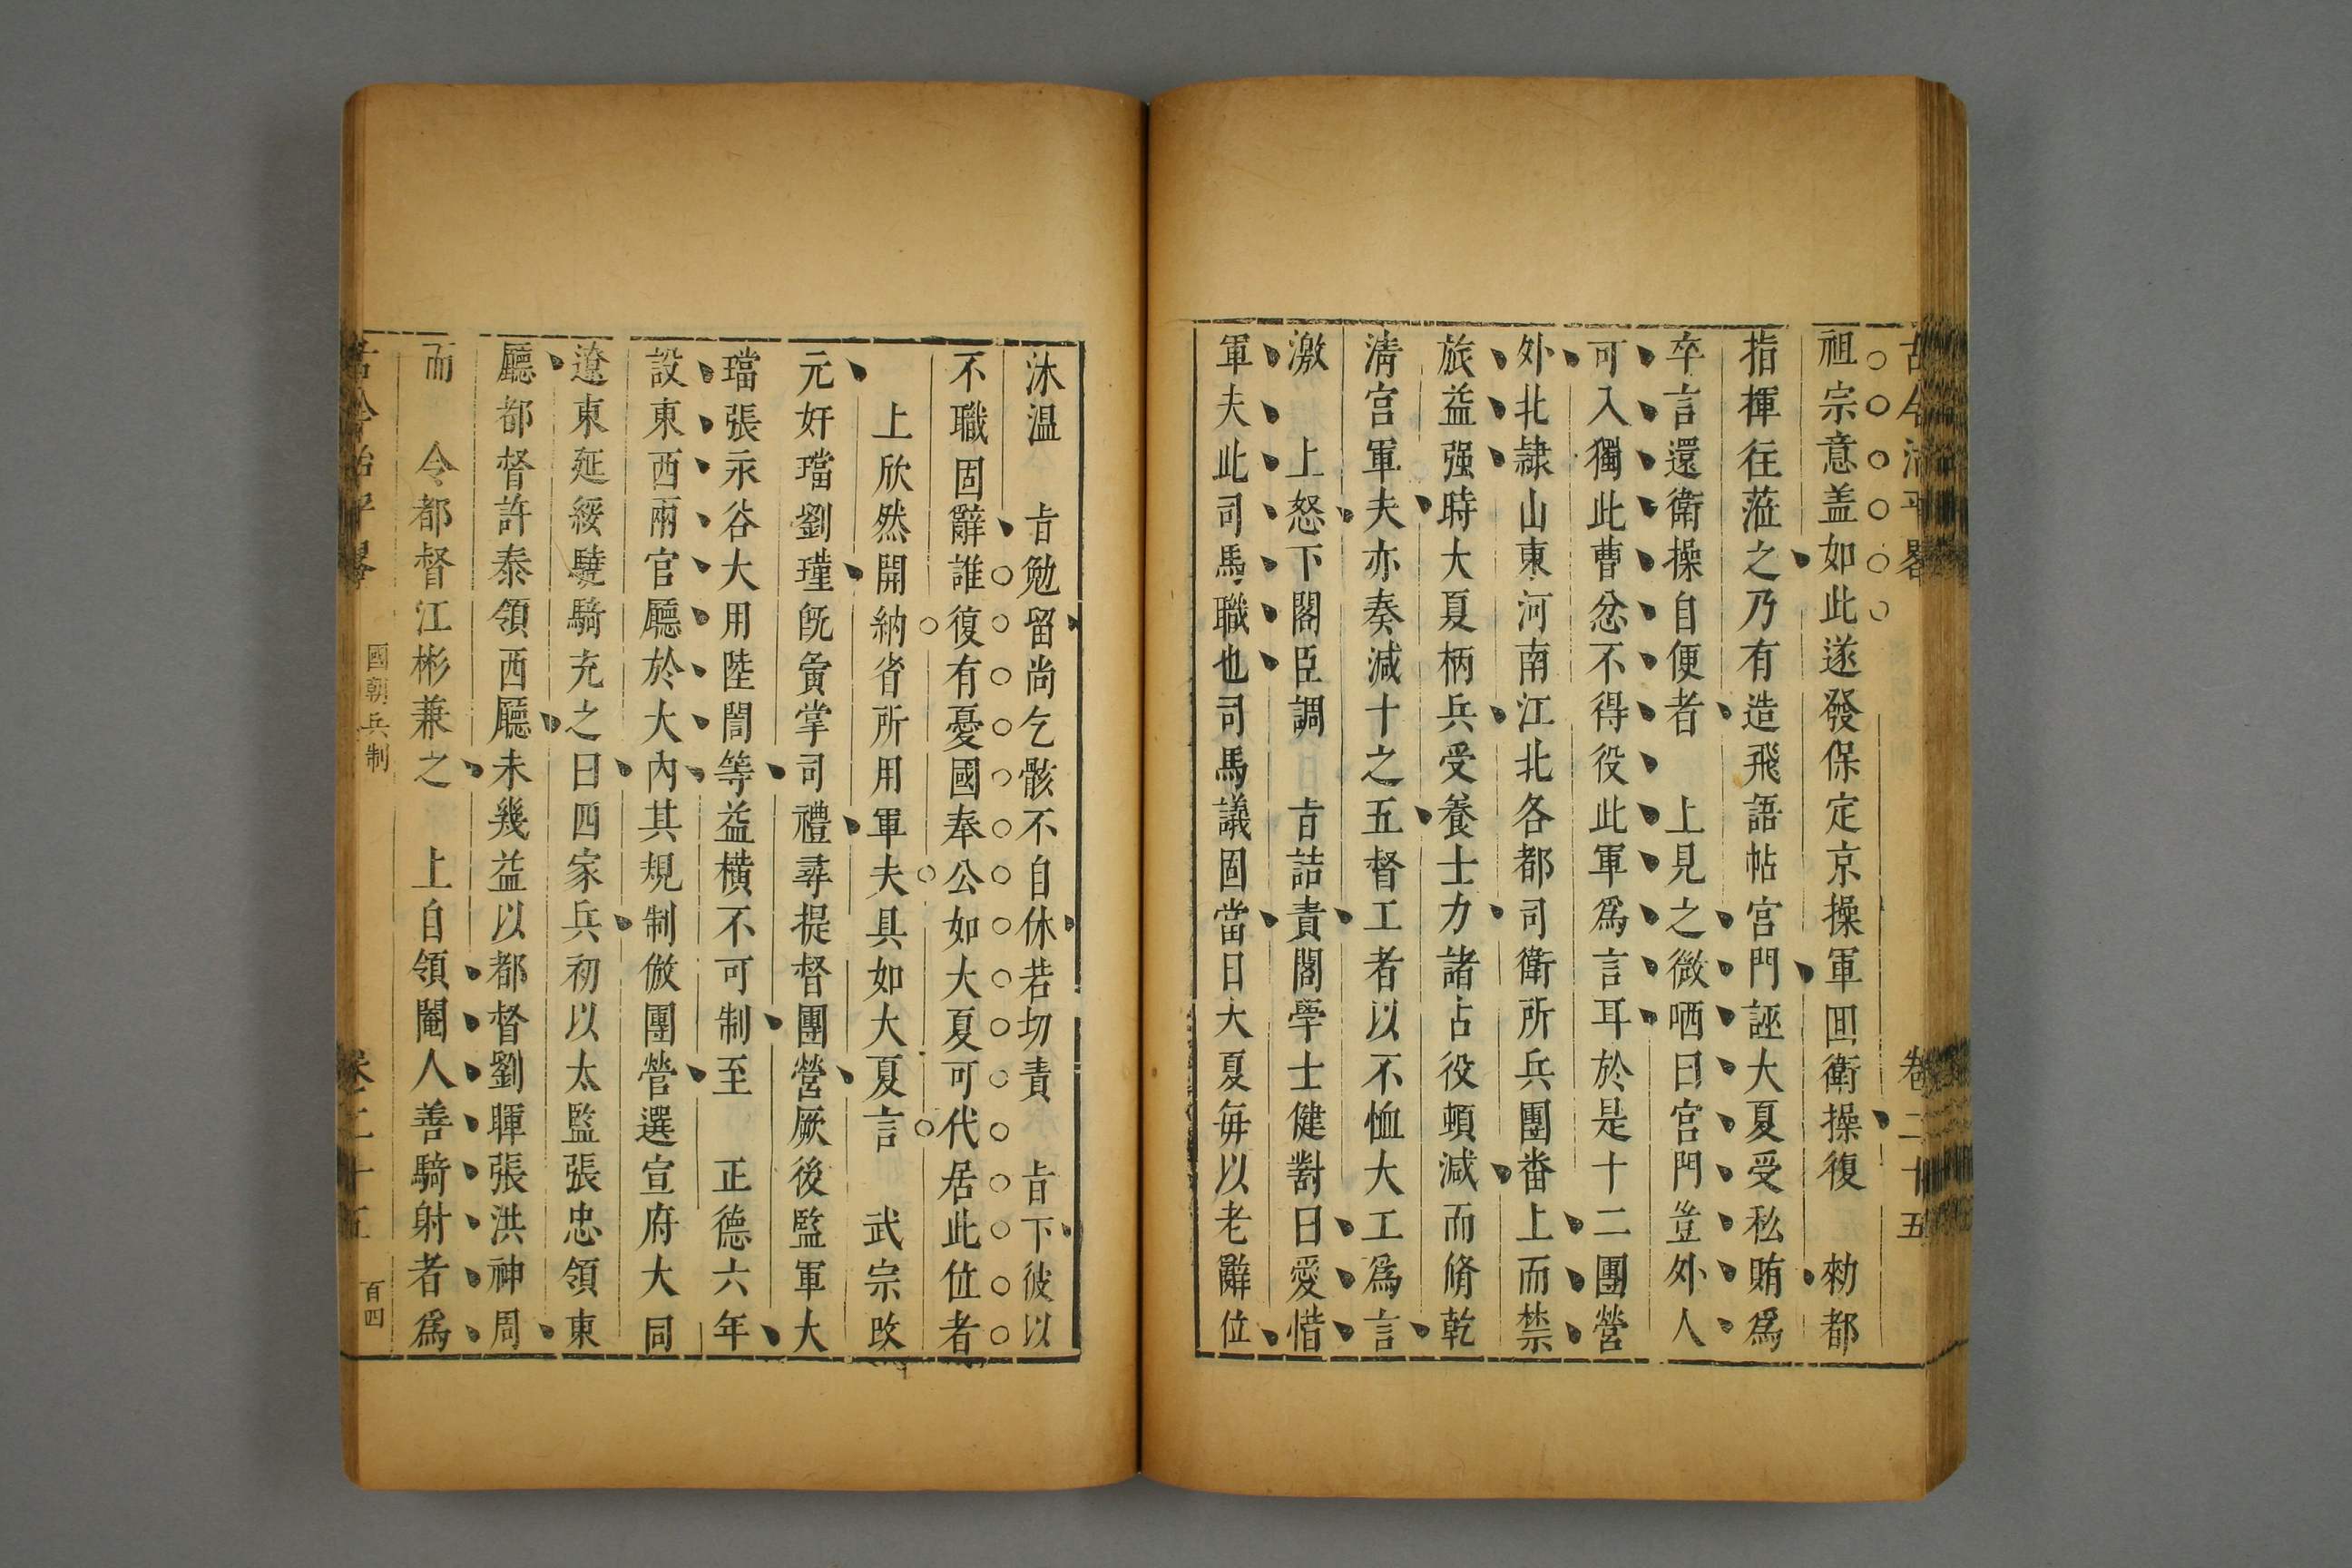 古今治平畧 卷二十五
祖宗意盖如此遂發保定京操軍囬衛操復 勑都
指揮往蒞之乃有造飛語帖宮門誣大夏受私賄爲
卒言還衛操自便者 上見之微哂曰宮門豈外人
可入獨此曹忿不得役此軍爲言耳於是十二團營
外北隷山東河南江北各都司衛所兵團畨上而禁
旅益强時大夏柄兵受養士力諸占役頓减而脩乾
淸宮軍夫亦奏减十之五督工者以不恤大工爲言
激 上怒下閣臣調 㫖詰責閣學士健對曰愛惜
軍夫此司馬職也司馬議固當日大夏毎以老辭位
沐温 㫖勉留尚乞骸不自休若切責 㫖下彼以
不職固辭誰復有憂國奉公如大夏可代居此位者
上欣然開納省所用軍夫具如大夏言 武宗改
元奸璫劉瑾旣夤掌司禮尋提督團營厥後監軍大
璫張永谷大用陸誾等益横不可制至 正德六年
設東西兩官廳於大內其規制倣團營選宣府大同
遼東延綏驍騎充之曰四家兵初以太監張忠領東
廳都督許泰領西廳未幾益以都督劉暉張洪神周
而 令都督江彬兼之 上自領閹人善騎射者爲
古今治平畧 國朝兵制 卷二十五 百四